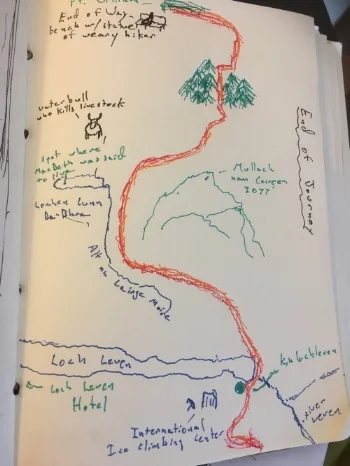 Ft. William
End of Way-
bench w/ statue
of weary hiker
water bull
who kills livestock
spot where
MacBeth was said
to live
Lochan Lunn
Da-Bhra
Allt na
Lairige Moire
Mullach
nan Coirean
3077
End of Journey
Loch Leven
Kinlochleven
← Loch Leven
Hotel
River
Leven
International
Ice Climbing Center